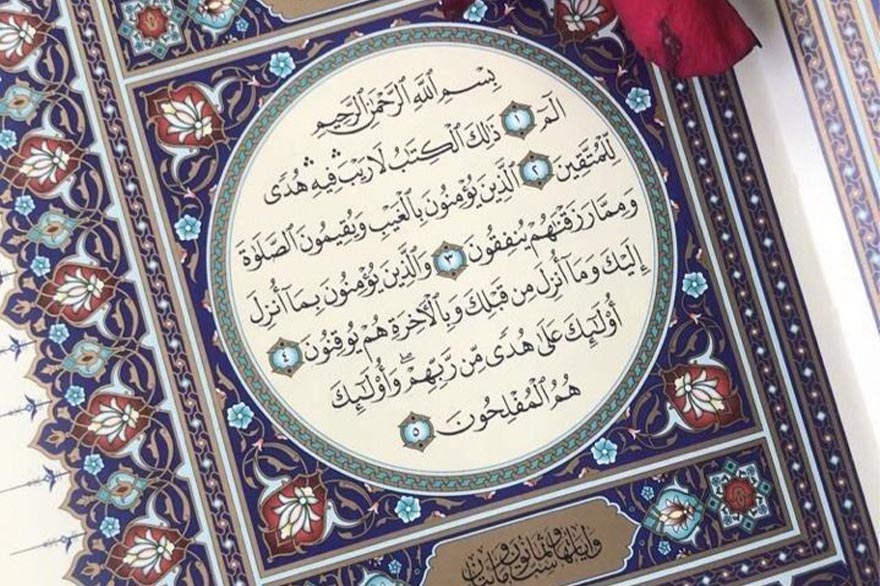 بِسْمِ ٱللَّهِ ٱلرَّحْمَٰنِ ٱلرَّحِيمِ
الٓمٓ ١ ذَٰلِكَ ٱلْكِتَٰبُ لَا رَيْبَ ۛ فِيهِ ۛ هُدًى
لِّلْمُتَّقِينَ ٢ ٱلَّذِينَ يُؤْمِنُونَ بِٱلْغَيْبِ وَيُقِيمُونَ ٱلصَّلَوٰةَ
وَمِمَّا رَزَقْنَٰهُمْ يُنفِقُونَ ٣ وَٱلَّذِينَ يُؤْمِنُونَ بِمَآ أُنزِلَ
إِلَيْكَ وَمَآ أُنزِلَ مِن قَبْلِكَ وَبِٱلْءَاخِرَةِ هُمْ يُوقِنُونَ ٤
أُو۟لَٰٓئِكَ عَلَىٰ هُدًى مِّن رَّبِّهِمْ ۖ وَأُو۟لَٰٓئِكَ
هُمُ ٱلْمُفْلِحُونَ ٥
وآياتها ست وثمانون ومائتان